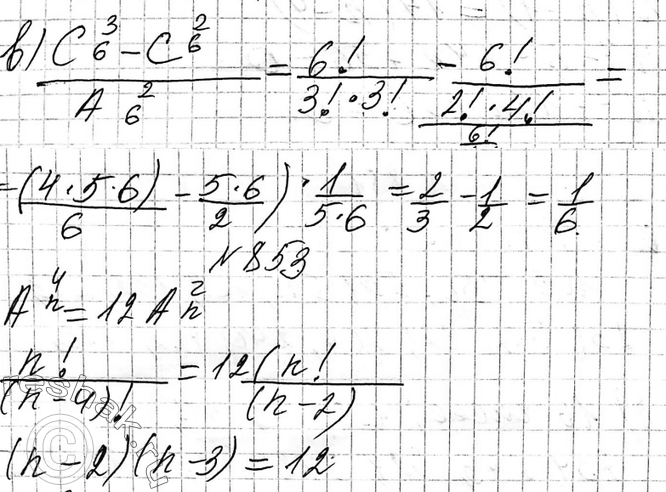 в) (C₆³ − C₆²) / A₆² = 6! / (3! · 3!) − 6! / (2! · 4!) / 6! =
= (4·5·6) / 6 − 5·6 / 2) · 1 / (5·6) = 2/3 − 1/2 = 1/6
N 853
Aₙ⁴ = 12 Aₙ²
n! / (n−4)! = 12 (n! / (n−2)
(n−2)(n−3) = 12